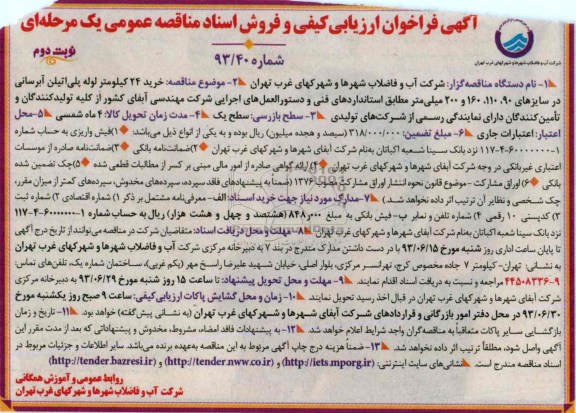 آگهی فراخوان ارزیابی کیفی و فروش اسناد مناقصه عمومی یک مرحله‌ای
شماره ۹۳/۴۰
نوبت دوم
شرکت آب و فاضلاب شهرها و شهرکهای غرب تهران
۱- نام دستگاه مناقصه‌گزار: شرکت آب و فاضلاب شهرها و شهرکهای غرب تهران ۲- موضوع مناقصه: خرید ۲۴ کیلومتر لوله پلی‌اتیلن آبرسانی
در سایزهای ۹۰، ۱۱۰، ۱۶۰ و ۲۰۰ میلی‌متر مطابق استانداردهای فنی و دستورالعمل‌های اجرایی شرکت مهندسی آبفای کشور از کلیه تولیدکنندگان و
تأمین‌کنندگان دارای نمایندگی رسمی از شرکت‌های تولیدی ۳- سطح بازرسی: سطح یک ۴- مدت زمان تحویل کالا: ۴ ماه شمسی ۵- محل
اعتبار: اعتبارات جاری ۶- مبلغ تضمین: ۳۱۸/۰۰۰/۰۰۰ (سیصد و هجده میلیون) ریال بوده و به یکی از انواع ذیل می‌باشد: ۱) فیش واریزی به حساب شماره
۱۱۷-۴-۶۰۰۰۰۰۰۰-۱ نزد بانک سینا شعبه اکباتان به‌نام شرکت آبفای شهرها و شهرکهای غرب تهران ۲) ضمانت‌نامه بانکی ۳) ضمانت‌نامه صادره از موسسات
اعتباری غیربانکی در وجه شرکت آبفای شهرها و شهرکهای غرب تهران ۴) ارائه گواهی صادره از امور مالی مبنی بر کسر از مطالبات قطعی شده ۵) چک تضمین شده
بانکی ۶) اوراق مشارکت - موضوع قانون نحوه انتشار اوراق مشارکت مصوب ۱۳۷۶ (ضمناً به پیشنهادهای فاقد سپرده، سپرده‌های مخدوش، سپرده‌های کمتر از میزان مقرر،
چک شخصی و نظایر آن ترتیب اثر داده نخواهد شد.) ۷- مدارک مورد نیاز جهت خرید اسناد: الف- معرفی‌نامه مشتمل بر ذکر ۱) شماره اقتصادی ۲) شماره ثبت
۳) کدپستی ۱۰ رقمی ۴) شماره تلفن و نمابر ب- فیش بانکی به مبلغ ۸۴۸،۰۰۰ (هشتصد و چهل و هشت هزار) ریال به حساب شماره ۱-۶۰۰۰۰۰۰۰-۴-۱۱۷
نزد بانک سینا شعبه اکباتان به‌نام شرکت آبفای شهرها و شهرکهای غرب تهران ۸- مهلت و محل دریافت اسناد: متقاضیان شرکت در مناقصه می‌توانند از تاریخ درج آگهی
تا پایان ساعت اداری روز شنبه مورخ ۹۳/۰۶/۱۵ با در دست داشتن مدارک مندرج در بند ۷ به دبیرخانه مرکزی شرکت آب و فاضلاب شهرها و شهرکهای غرب تهران
به نشانی: تهران- کیلومتر ۷ جاده مخصوص کرج، تهرانسر مرکزی، بلوار اصلی، خیابان شهید علیرضا راسخ مهر (یکم غربی)، ساختمان شماره یک، تلفن‌های تماس:
۹-۴۴۵۰۸۳۳۶ مراجعه و نسبت به دریافت اسناد اقدام نمایند. ۹- مهلت و محل تحویل پیشنهاد: تا ساعت ۱۵ روز شنبه مورخ ۹۳/۰۶/۲۹ به دبیرخانه مرکزی
شرکت آبفای شهرها و شهرکهای غرب تهران در قبال اخذ رسید تحویل نمایند. ۱۰- زمان و محل گشایش پاکات ارزیابی کیفی: ساعت ۹ صبح روز یکشنبه مورخ
۹۳/۰۶/۳۰ در محل دفتر امور بازرگانی و قراردادهای شرکت آبفای شهرها و شهرکهای غرب تهران (به نشانی پیش گفته) خواهد بود. ۱۱- تاریخ و زمان
بازگشایی سایر پاکات متعاقباً به مناقصه‌گران واجد شرایط اعلام خواهد شد ۱۲- به پیشنهادات فاقد امضاء، مشروط، مخدوش و پیشنهاداتی که بعد از مدت مقرر این
آگهی واصل شود، مطلقاً ترتیب اثر داده نخواهد شد. ۱۳- ضمناً هزینه درج چاپ آگهی مربوط به این مناقصه به‌عهده برنده می‌باشد. سایر اطلاعات و جزئیات مربوط در
اسناد مناقصه مندرج است. نشانی سایت اینترنتی: (http://iets.mporg.ir) و (http://tender.nww.co.ir) و (http://tender.bazresi.ir)
روابط عمومی و آموزش همگانی
شرکت آب و فاضلاب شهرها و شهرکهای غرب تهران